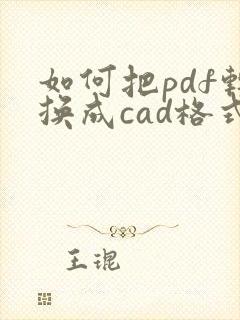 如何把pdf轉
换成cad格式
王琨